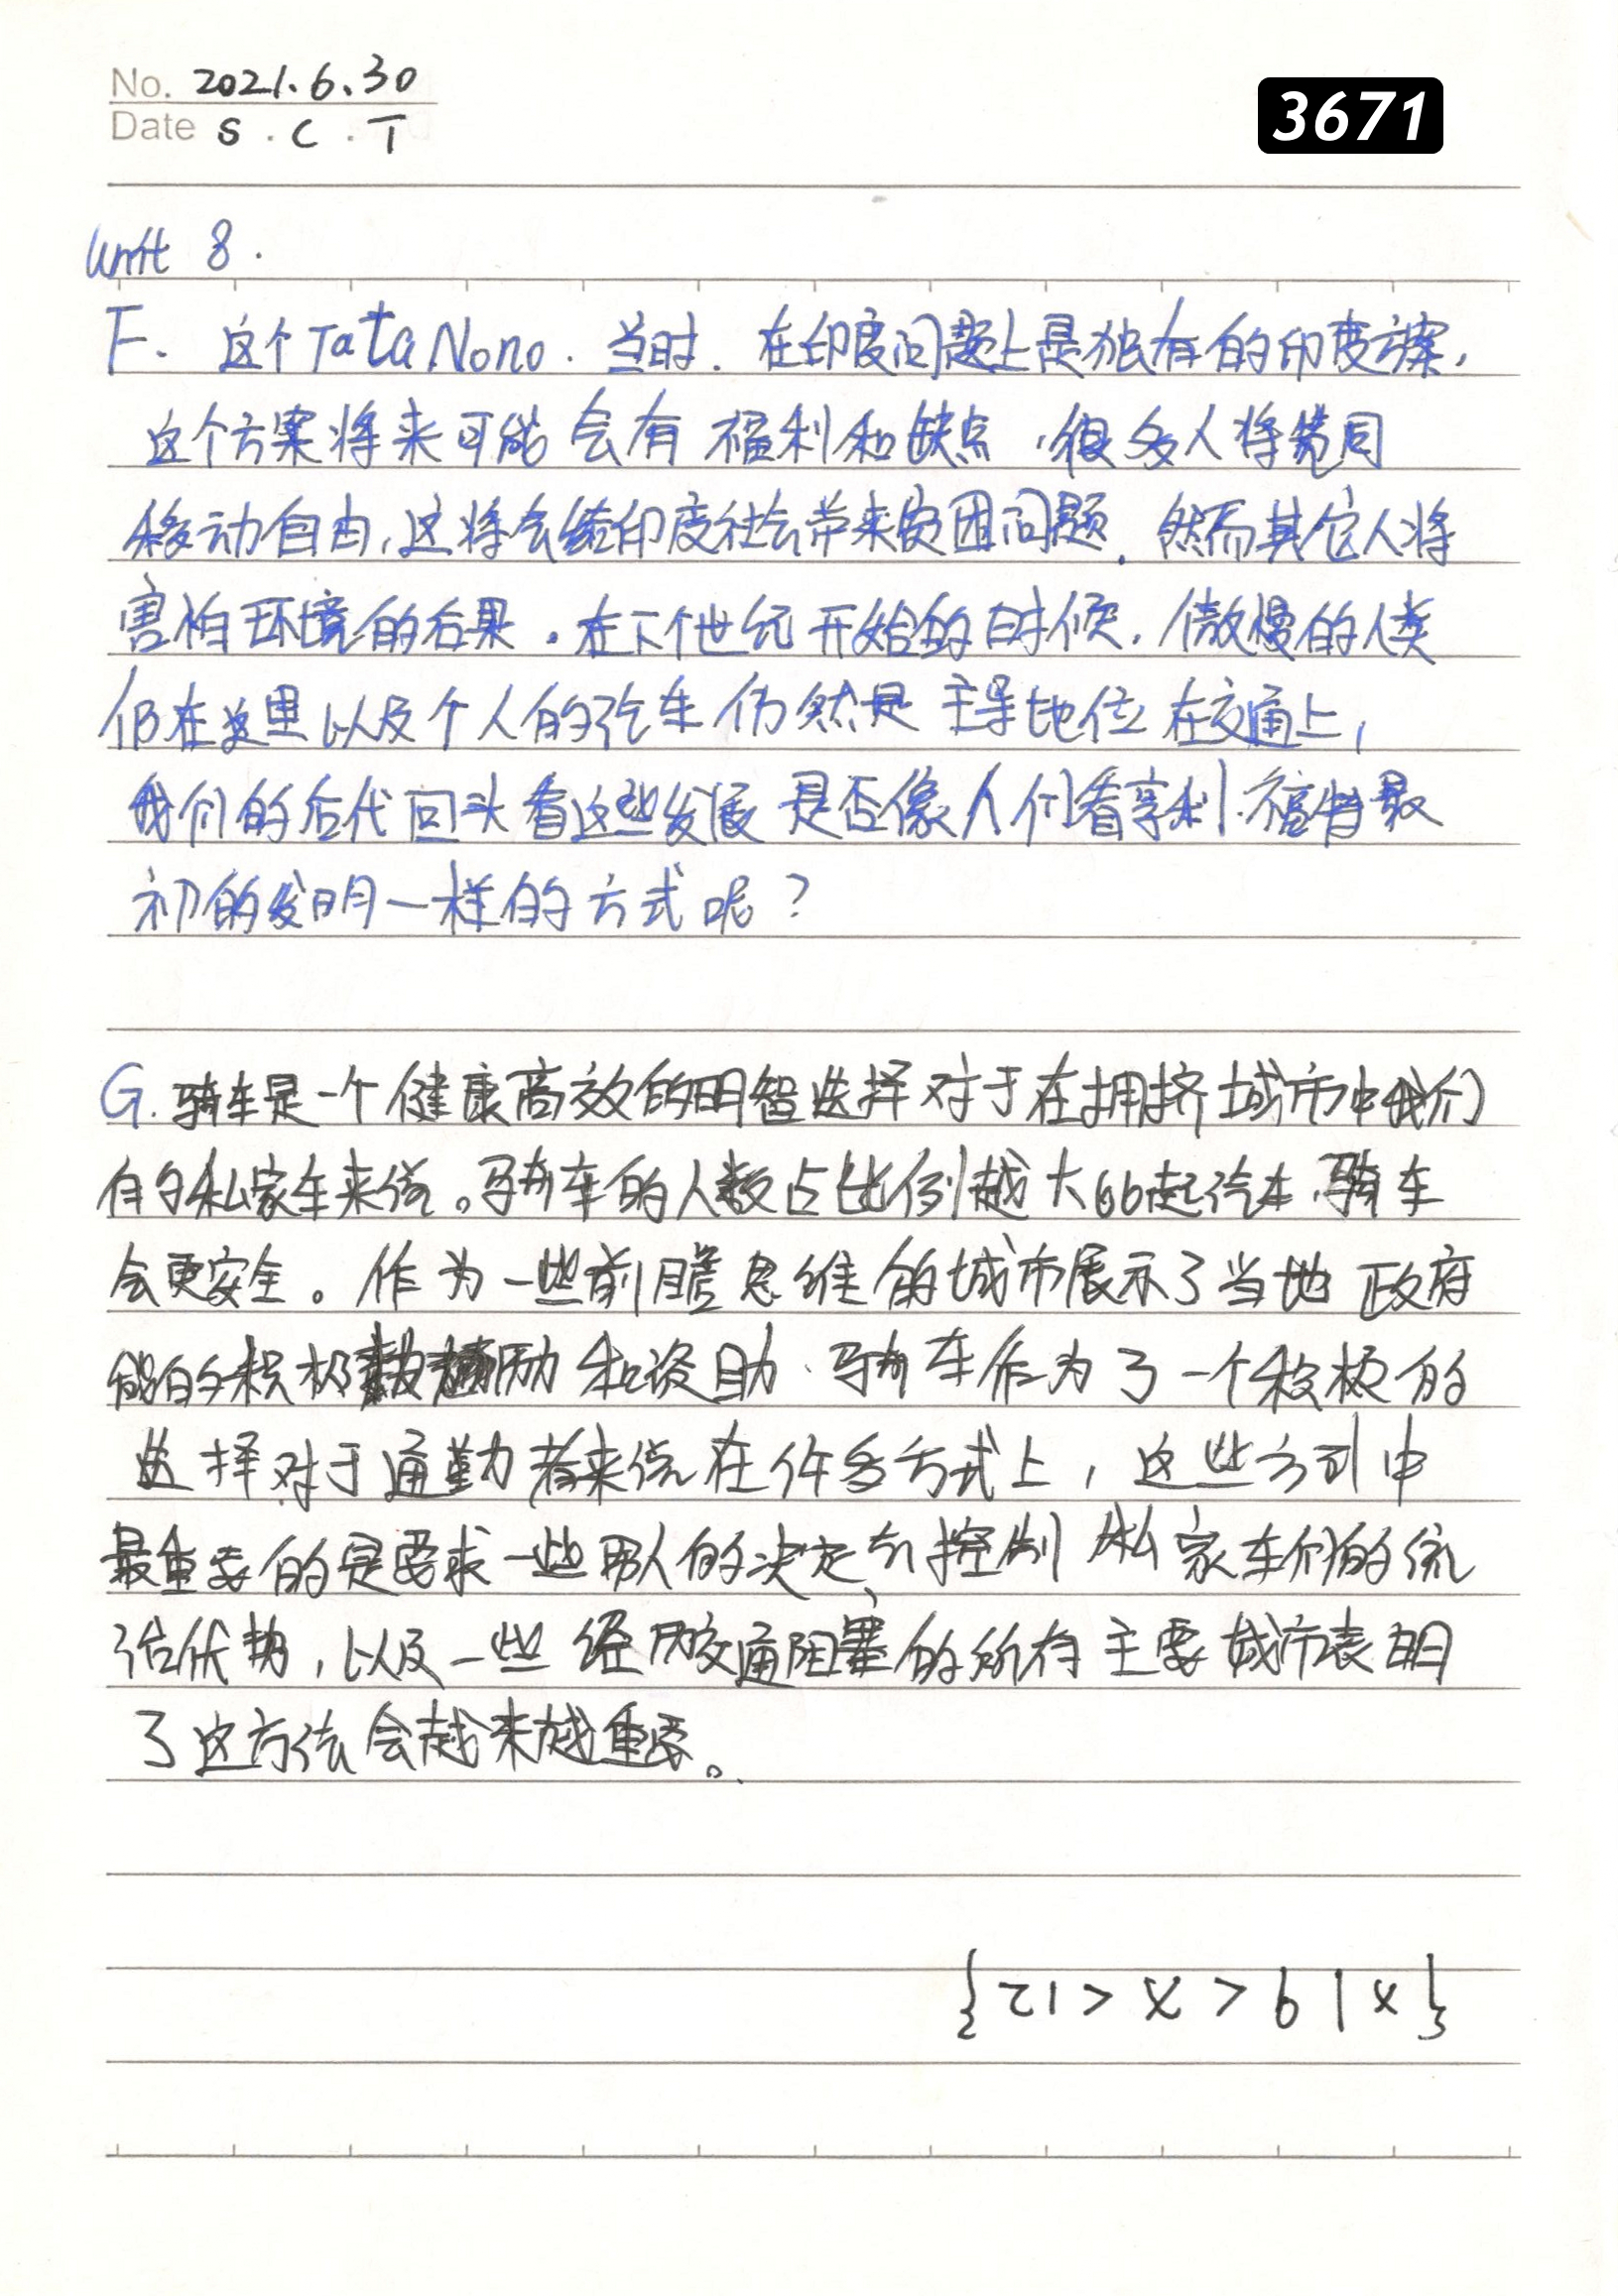 No. 2021.6.30
3671
Date S . C . T
Unit 8.
F. 这个Tata Nono. 当时. 在印度问题上是独有的印度方案,
这个方案将来可能会有福利和缺点,很多人将 同
移动自由,这将会给印度社会带来贫困问题. 然而其它人将
害怕环境的后果. 在下个世纪开始的时候. 傲慢的人类
仍在这里以及个人的汽车仍然是主导地位在交通上,
我们的后代回头看这些发展是否像人们看亨利·福特最
初的发明一样的方式呢?
G. 骑车是一个健康高效的明智选择对于在拥挤城市中我们
有的私家车来说。骑车的人数占比例越大 比起汽车,骑车
会更安全。作为一些前瞻思维的城市展示了当地政府
的积极 励和资助、骑车作为了一个积极的
选择对于通勤者来说在许多方式上,这些方式中
最重要的是要求一些男人的决定去控制私家车们的统
治优势,以及一些经历交通阻塞的所有主要城市表明
了这方法会越来越重要。
{x|9<x<12}